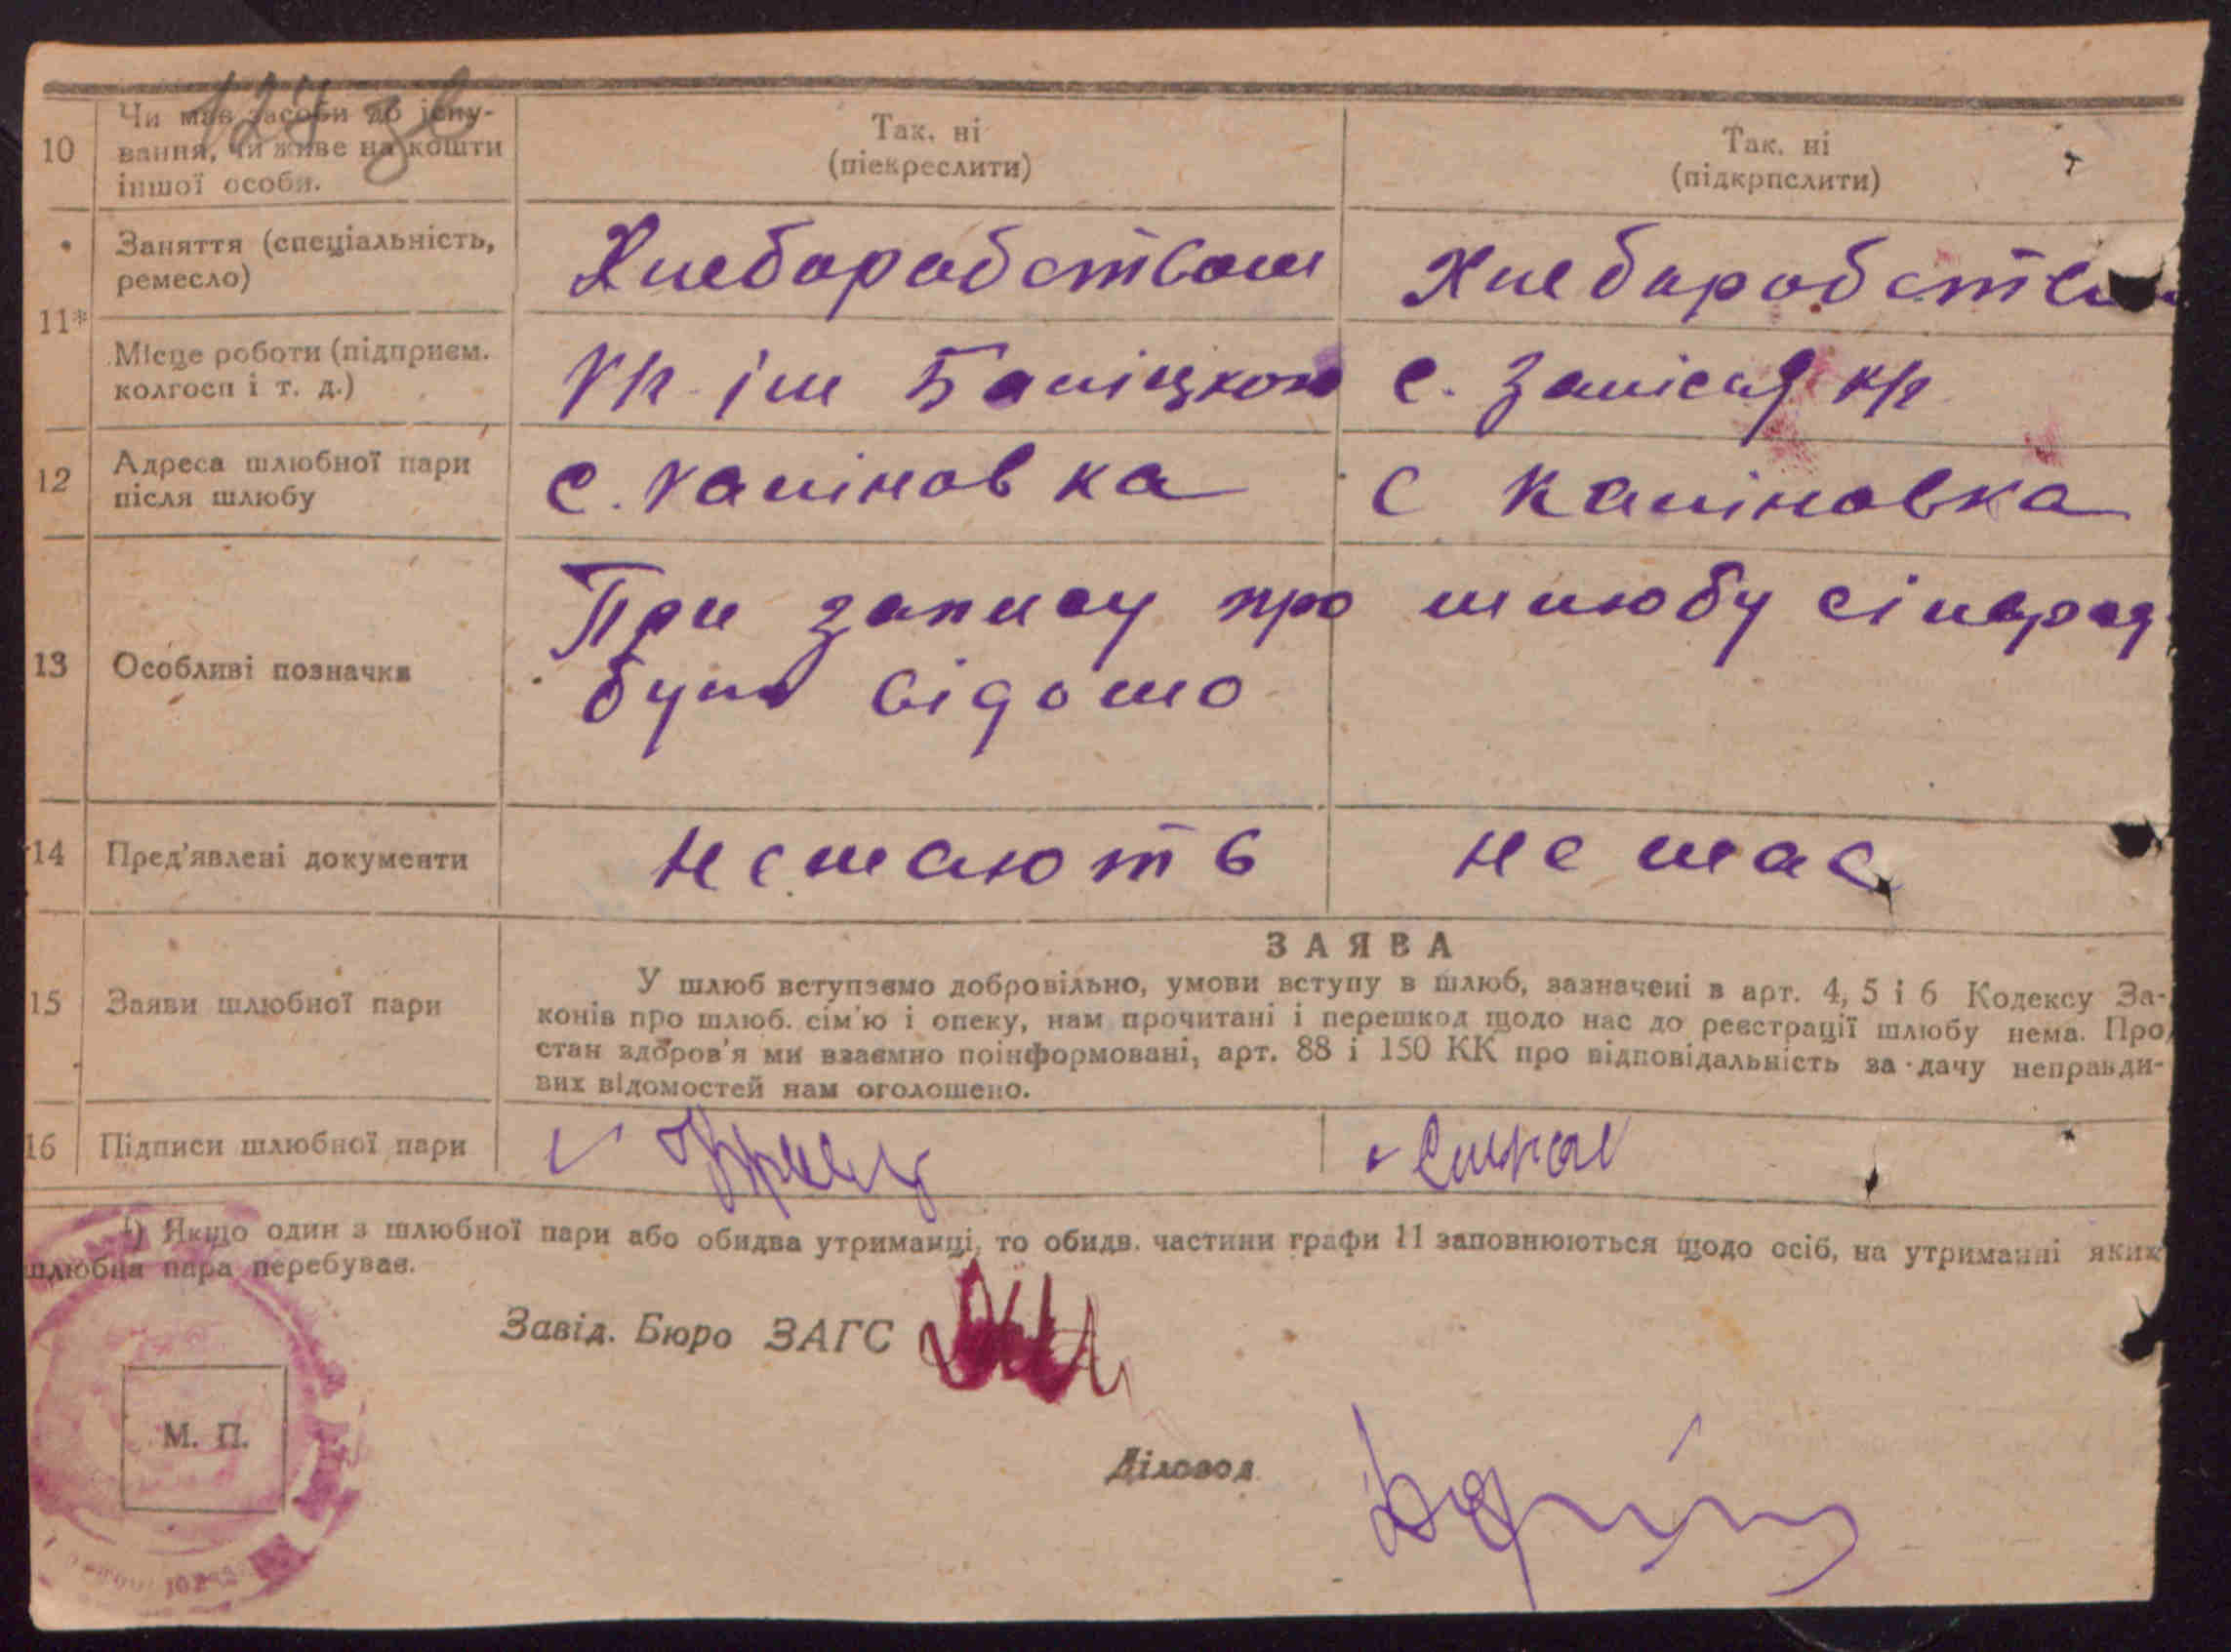 127 зв
10
Чи має засоби до існу-
вання, чи живе на кошти
іншої особи.
Так. ні
(піекреслити)
Так. ні
(підкрпслити)
11*
Заняття (спеціальність,
ремесло)
Хлебаробством
Хлебаробством
Місце роботи (підприєм.
колгосп і т. д.)
к/г ім Баліцкого
с. Залісся к/г
12
Адреса шлюбної пари
після шлюбу
с. Каліновка
с Каліновка
13
Особливі позначки
При запису про шлюбу сільрад
було відомо
14
Пред'явлені документи
не мають
не має
15
Заяви шлюбної пари
ЗАЯВА
У шлюб вступаємо добровільно, умови вступу в шлюб, зазначені в арт. 4, 5 і 6 Кодексу За-
конів про шлюб. сім'ю і опеку, нам прочитані і перешкод щодо нас до реєстрації шлюбу нема. Про
стан здоров'я ми взаємно поінформовані, арт. 88 і 150 КК про відповідальність за дачу неправди-
вих відомостей нам оголошено.
16
Підписи шлюбної пари
¹) Якщо один з шлюбної пари або обидва утриманці, то обидв. частини графи 11 заповнюються щодо осіб, на утриманні яких
шлюбна пара перебуває.
Завід. Бюро ЗАГС
М. П.
Діловод